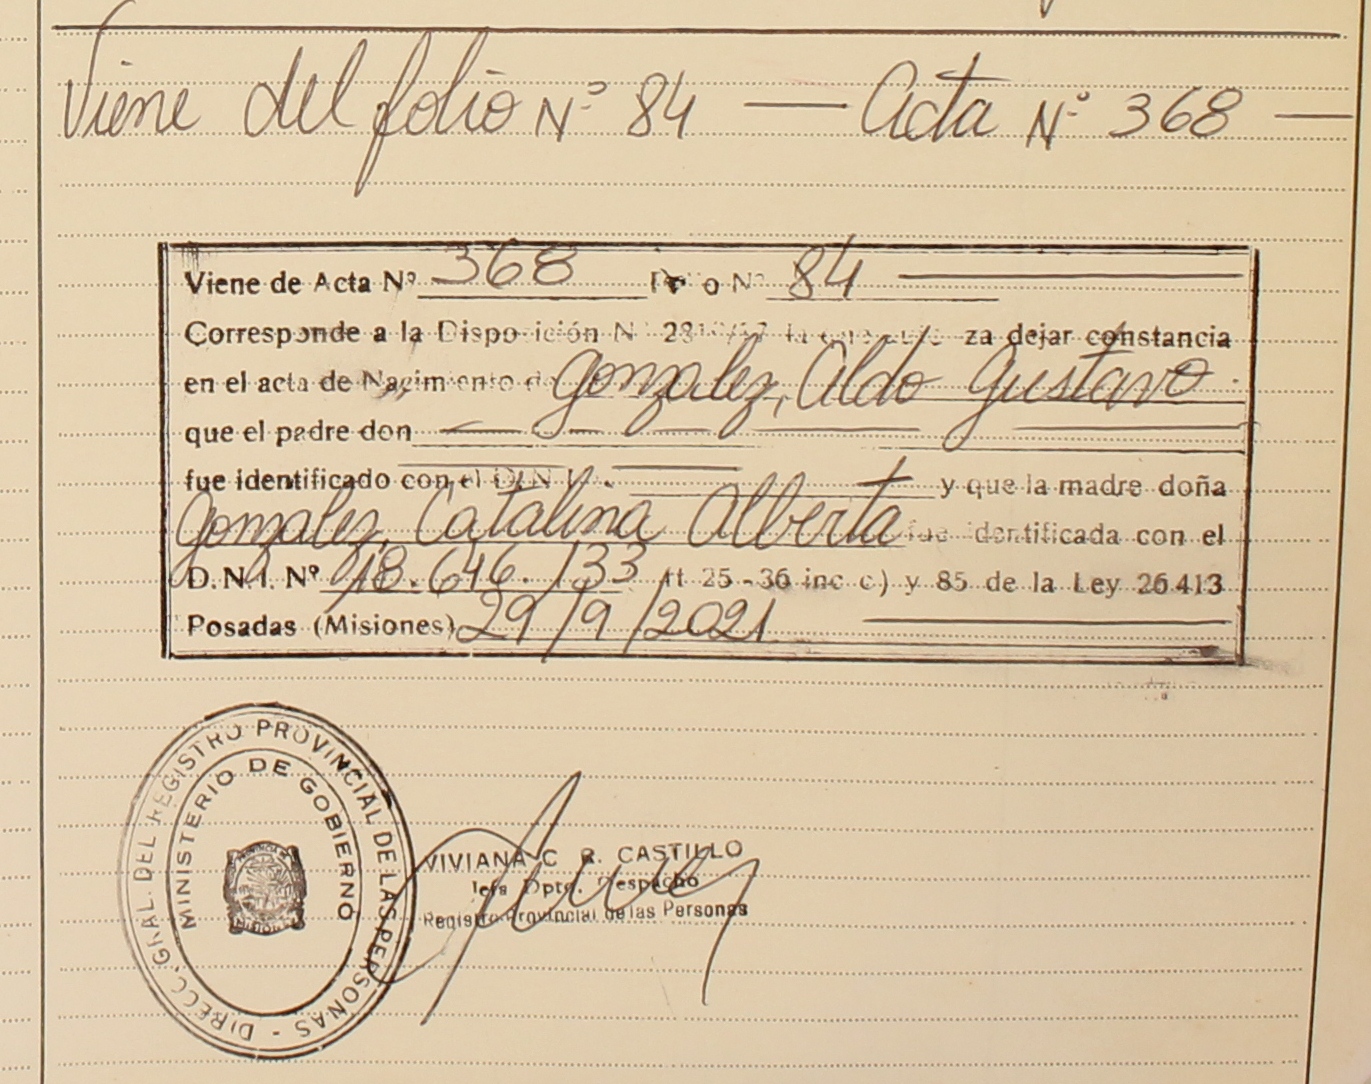 Viene del folio Nº 84 — Acta Nº 368 —
Viene de Acta Nº 368 Folio Nº 84
Corresponde a la Disposición Nº za dejar constancia
en el acta de Nacimiento de Gonzalez, Aldo Gustavo
que el padre don — — — — —
fue identificado con el D.N.I. — y que la madre doña
Gonzalez, Catalina Alberta fue identificada con el
D.N.I. Nº 18.646.133 Art 25-36 inc c) y 85 de la Ley 26413
Posadas (Misiones) 29/9/2021
DIRECC. GRAL. DEL REGISTRO PROVINCIAL DE LAS PERSONAS -
MINISTERIO DE GOBIERNO
VIVIANA C. R. CASTILLO
Jefa Dpto. Despacho
Registro Provincial de las Personas